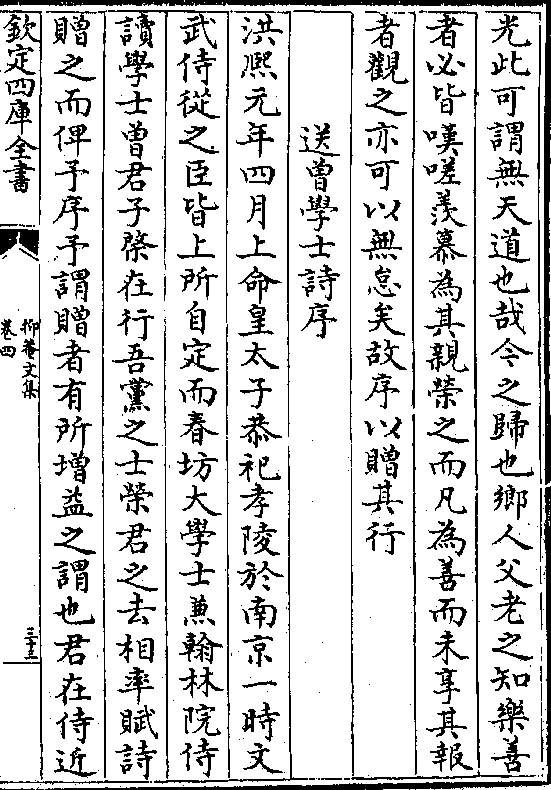 光此可謂無天道也哉今之歸也鄉人父老之知樂善
者必皆嘆嗟羨慕為其親榮之而凡為善而未享其報
者觀之亦可以無怠矣故序以贈其行
送曾學士詩序
洪熙元年四月上命皇太子恭祀孝陵於南京一時文
武侍從之臣皆上所自定而春坊大學士兼翰林院侍
讀學士曾君子棨在行吾黨之士榮君之去相率賦詩
贈之而俾予序予謂贈者有所增益之謂也君在侍近
欽定四庫全書
抑菴文集
卷四
三十三